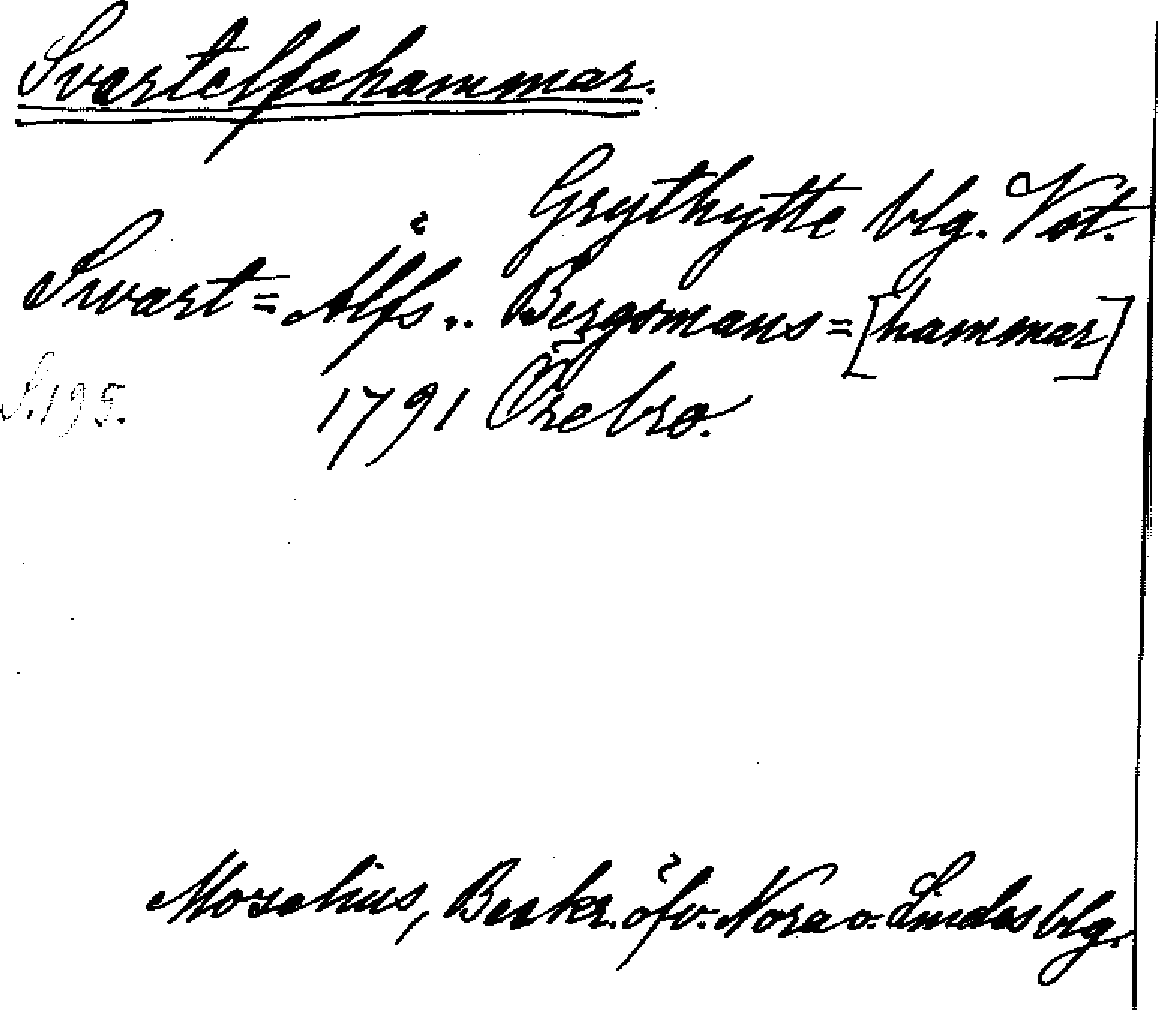 Svartelfshammar.
Grythytte blg. Vstml.
Swart= Älfs.. Bergsmans=[hammar]
S. 195. 1791 Örebro.
Moselius, Beskr. öfv. Nora o. Lindes blg.